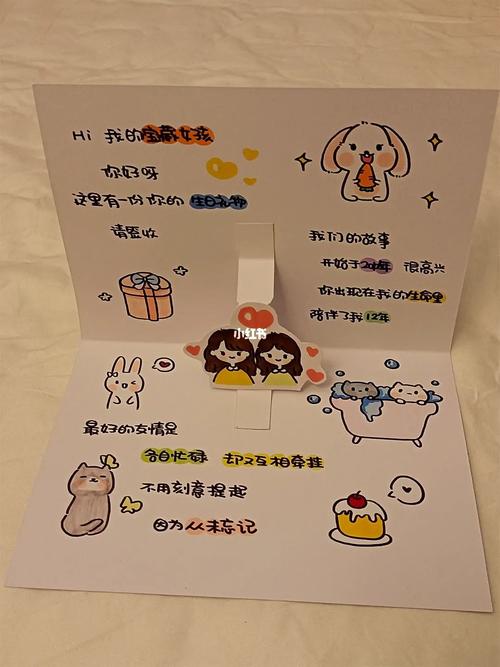 Hi 我的宝藏女孩
你好呀
这里有一份你的生日礼物
请签收
我们的故事
开始于 很高兴
你出现在我的生命里
陪伴了我12年
小红书
最好的友情是
各自忙碌 却又互相牵挂
不用刻意提起
因为从未忘记